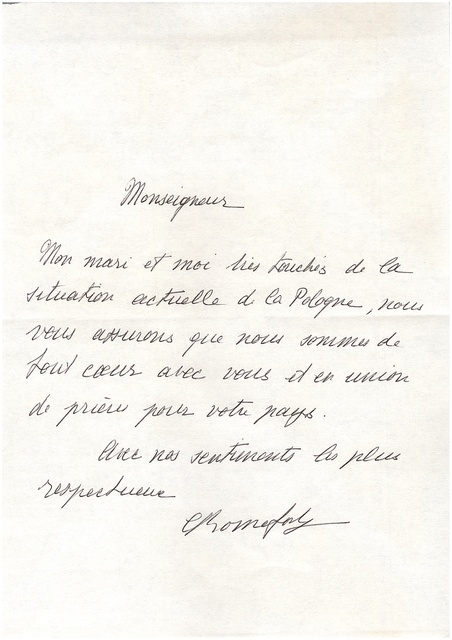 Monseigneur
Mon mari et moi très touchés de la
situation actuelle de la Pologne, nous
vous assurons que nous sommes de
tout cœur avec vous et en union
de prière pour votre pays.
Avec nos sentiments les plus
respectueux